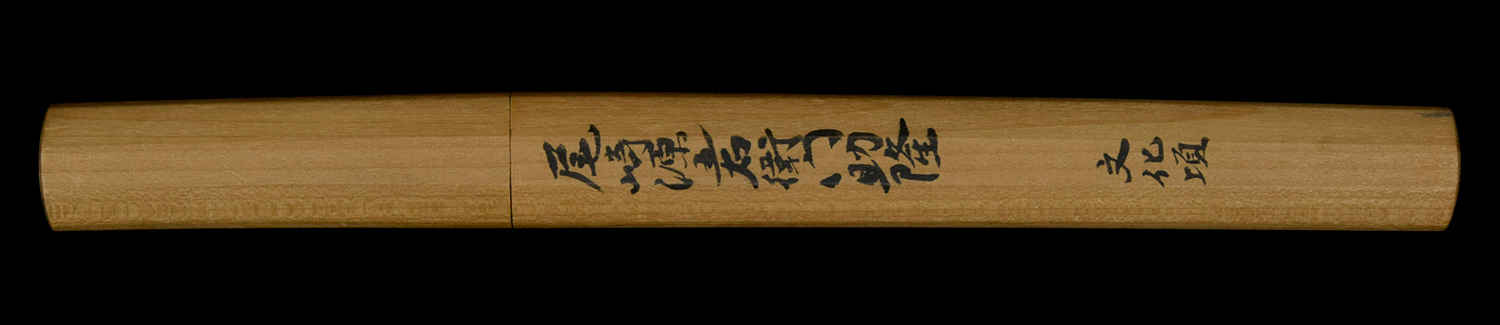 尾崎源五右衛門助隆
文化頃